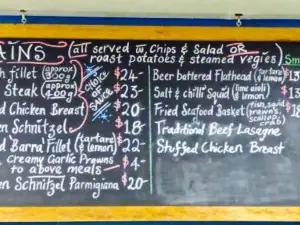 AINS (all served w, Chips & Salad OR
roast potatoes & steamed vegies)
h fillet (approx 300g) $24-
Steak (approx 400g) $23-
CHOICE OF SAUCE
d Chicken Breast $20-
n Schnitzel $18-
d Barra Fillet (tartare & lemon) $22-
Creamy Garlic Prawns
to above meals $4-
en Schnitzel Parmigiana $20-
Beer battered Flathead (tartare & lemon) $
Salt & chilli Squid (lime aioli & lemon) $13
Fried Seafood Basket (fish, squid, prawn's, scallops, crab) $18
Traditional Beef Lasagne
Stuffed Chicken Breast